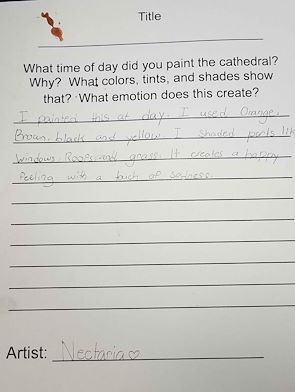 Title
What time of day did you paint the cathedral?
Why? What colors, tints, and shades show
that? What emotion does this create?
I painted this at day. I used Orange,
Brown, black and yellow. I shaded parts like
windows, Roofs and grass. It creates a happy
feeling with a touch of sadness.
Artist: Nectaria♡